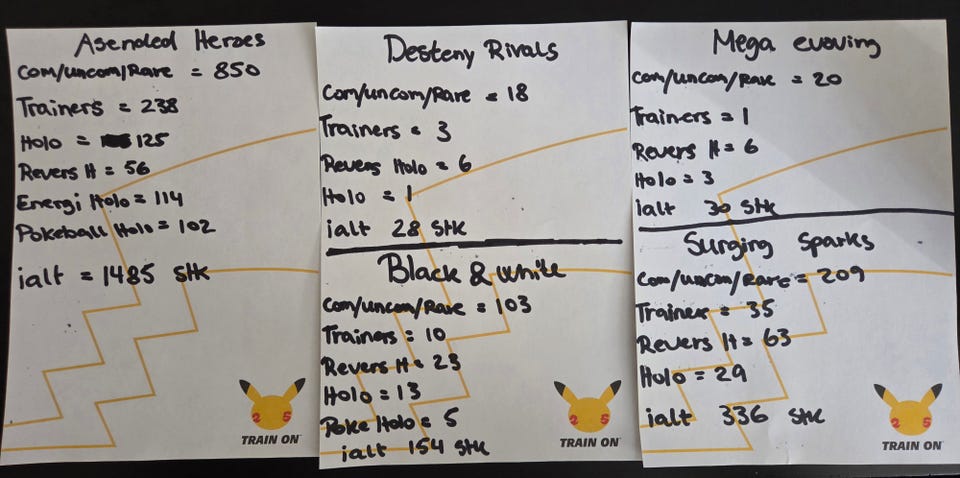 Asended Heroes
Com/uncom/Rare = 850
Trainers = 238
Holo = 125
Revers H = 56
Energi Holo = 114
Pokeball Holo = 102
ialt = 1485 Stk
25
TRAIN ON
Desteny Rivals
Com/uncom/Rare = 18
Trainers = 3
Revers Holo = 6
Holo = 1
ialt 28 Stk
Black & White
Com/uncom/Rare = 103
Trainers = 10
Revers H = 23
Holo = 13
Poke Holo = 5
ialt 154 Stk
25
TRAIN ON
Mega evoving
Com/uncom/Rare = 20
Trainers = 1
Revers H = 6
Holo = 3
ialt 30 Stk
Surging Sparks
Com/uncom/Rare = 209
Trainers = 35
Revers H = 63
Holo = 29
ialt 336 Stk
25
TRAIN ON